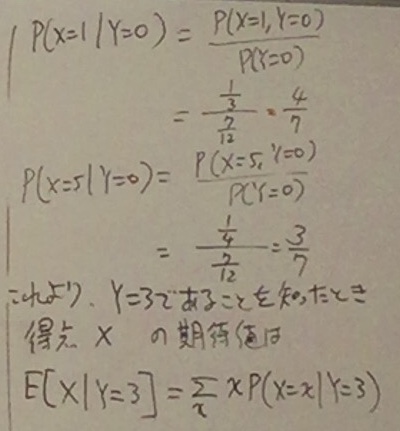 P(X=1|Y=0) = P(X=1, Y=0) / P(Y=0)
= 1/3 / 7/12 = 4/7
P(X=5|Y=0) = P(X=5, Y=0) / P(Y=0)
= 1/4 / 7/12 = 3/7
これより、Y=3であることを知ったとき
得点 X の期待値は
E[X|Y=3] = Σx xP(X=x|Y=3)